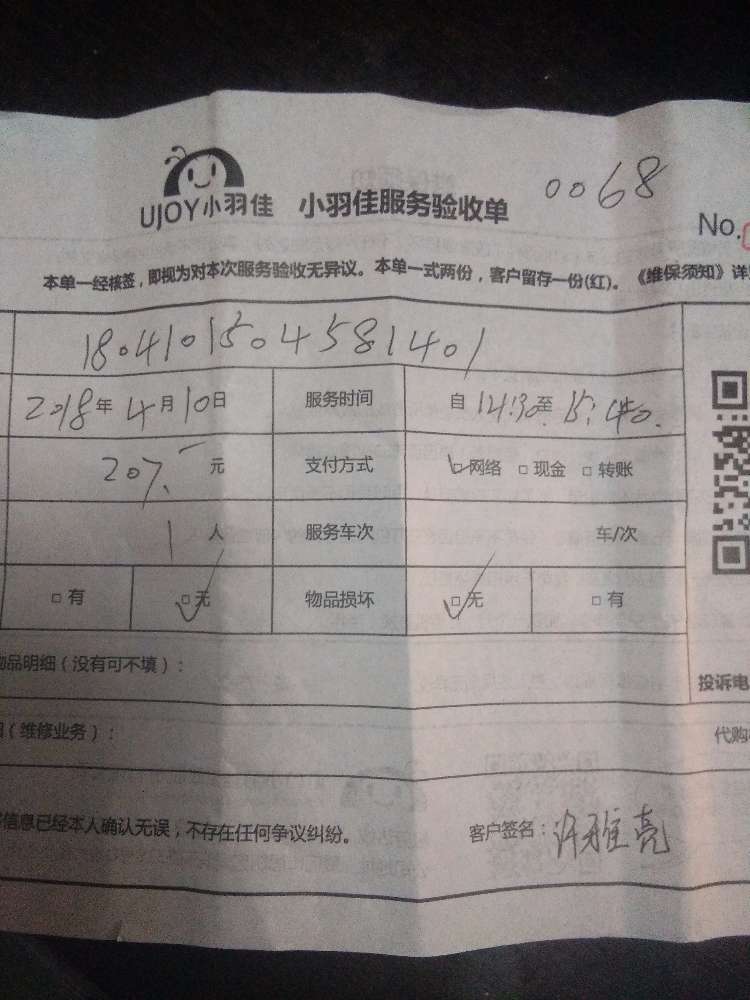 0068
UJOY小羽佳 小羽佳服务验收单
No.
本单一经核签，即视为对本次服务验收无异议。本单一式两份，客户留存一份(红)。《维保须知》详
1804101504581401
2018年4月10日 服务时间 自14:30至15:40.
207.- 元 支付方式 □网络 □现金 □转账
1人 服务车次 车/次
□有 □无 物品损坏 □无 □有
物品明细（没有可不填）：
投诉电
（维修业务）：
代购
信息已经本人确认无误，不存在任何争议纠纷。 客户签名：许雅亮